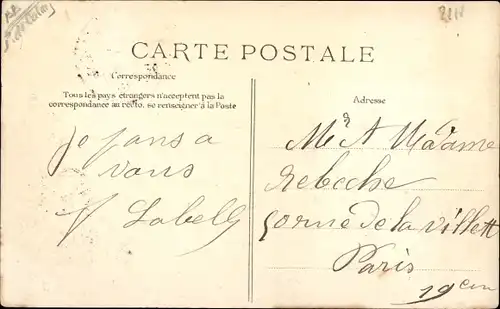 CARTE POSTALE
Correspondance
Tous les pays étrangers n'acceptent pas la
correspondance au recto, se renseigner à la Poste
je pans a
vous
Labell
Adresse
Mr A Madame
Rebeche
de la villett
Paris
19em